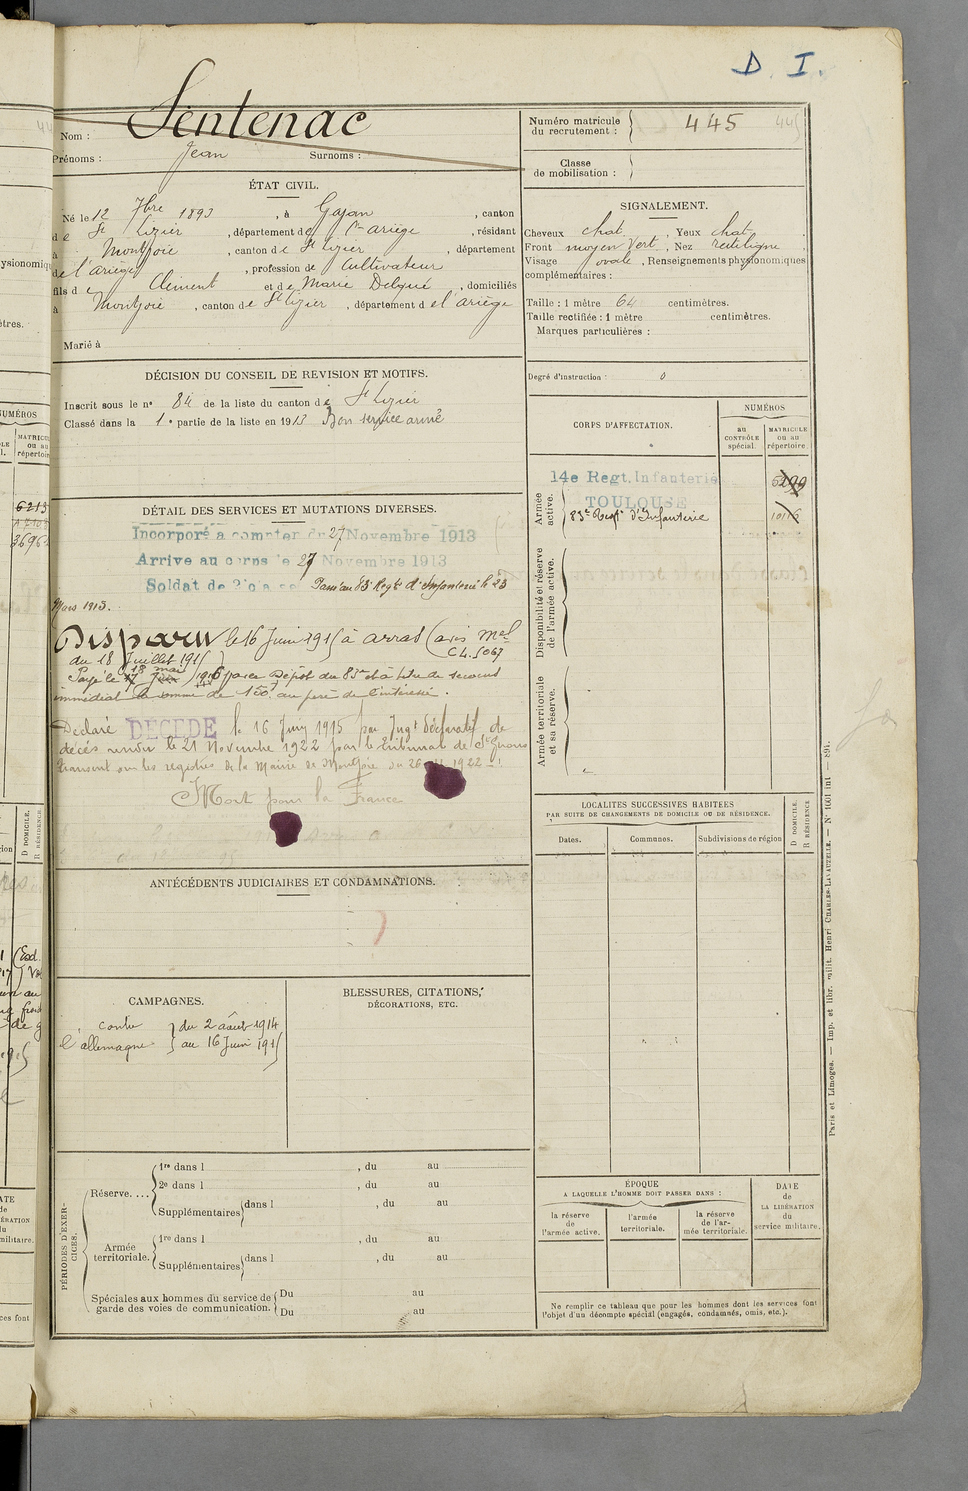 D. I.
Sentenac
Nom :
Prénoms : Jean Surnoms :
Numéro matricule du recrutement : 445
Classe de mobilisation :
ÉTAT CIVIL.
Né le 12 7bre 1893, à Gajan, canton
de St Lizier, département de l'Ariège, résidant
à Montjoie, canton de St Lizier, département
de l'Ariège, profession de Cultivateur
fils de Clément et de Marie Delqué, domiciliés
à Montjoie, canton de St Lizier, département de l'Ariège
Marié à
SIGNALEMENT.
Cheveux chat, Yeux chat
Front moyen Vert, Nez rectiligne
Visage ovale, Renseignements physionomiques
complémentaires :
Taille : 1 mètre 64 centimètres.
Taille rectifiée : 1 mètre centimètres.
Marques particulières :
Degré d'instruction : 0
DÉCISION DU CONSEIL DE REVISION ET MOTIFS.
Inscrit sous le n° 84 de la liste du canton de St Lizier
Classé dans la 1e partie de la liste en 1913 Bon service armé
CORPS D'AFFECTATION.
NUMÉROS
au CONTRÔLE spécial.
MATRICULE ou au répertoire.
Armée active.
14e Regt. Infanterie
TOULOUSE
83e Regt d'Infanterie
Disponibilité et réserve de l'armée active.
Armée territoriale et sa réserve.
DÉTAIL DES SERVICES ET MUTATIONS DIVERSES.
Incorporé à compter du 27 Novembre 1913
Arrivé au corps le 27 Novembre 1913
Soldat de 2e classe Passé au 83 Regt d'Infanterie le 23
Mars 1915.
Disparu le 16 Juin 1915 à Arras (avis Mel
du 18 Juillet 1915) CL. 5067
18 mai
Payé le 1916 par le Dépôt du 83e et à titre de secours
immédiat la somme de 150f au père de l'intéressé.
Déclaré DECEDE le 16 Juin 1915 par Jugt déclaratif de
décès rendu le 21 Novembre 1922 par le tribunal de St Girons
transcrit sur les registres de la Mairie de Montjoie du 26 1922
Mort pour la France
LOCALITÉS SUCCESSIVES HABITÉES
PAR SUITE DE CHANGEMENTS DE DOMICILE OU DE RÉSIDENCE.
Dates.
Communes.
Subdivisions de région
D DOMICILE.
R RÉSIDENCE
ANTÉCÉDENTS JUDICIAIRES ET CONDAMNATIONS.
CAMPAGNES.
contre l'allemagne
du 2 août 1914
au 16 Juin 1915
BLESSURES, CITATIONS,
DÉCORATIONS, ETC.
PÉRIODES D'EXERCICES.
Réserve....
1re dans l , du au
2e dans l , du au
Supplémentaires dans l , du au
Armée territoriale.
1re dans l , du au
Supplémentaires dans l , du au
Spéciales aux hommes du service de garde des voies de communication.
Du au
Du au
ÉPOQUE
A LAQUELLE L'HOMME DOIT PASSER DANS :
la réserve de l'armée active.
l'armée territoriale.
la réserve de l'armée territoriale.
DATE de LA LIBÉRATION du service militaire.
Ne remplir ce tableau que pour les hommes dont les services font
l'objet d'un décompte spécial (engagés, condamnés, omis, etc.).
Paris et Limoges. — Imp. et libr. milit. Henri CHARLES-LAVAUZELLE. — N° 1601 int